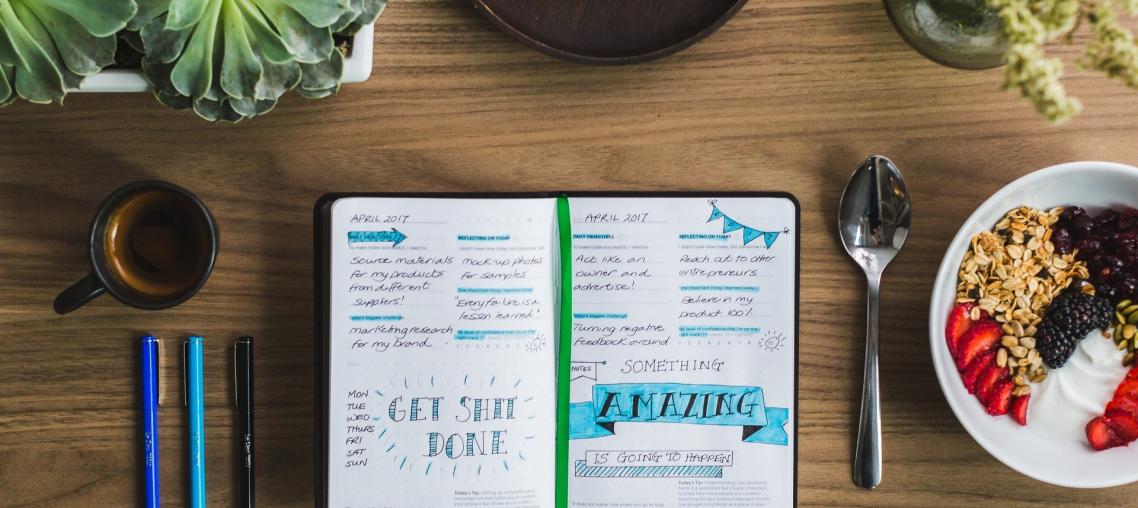 APRIL 2017
DAILY OBJECTIVES
To make today successful, I need to:
Source materials
for my products
from different
suppliers!
Today's biggest challenge
marketing research
for my brand.
REFLECTING ON TODAY
I didn't have time today, but tomorrow I will
mock-up photos
for samples
One important thing I learned today
"Every failure is a
lesson learned"
My level of confidence that I'm on the
right track
MON
TUE
WED
THURS
FRI
SAT
SUN
GET SHIT
DONE
Today's Tip:
APRIL 2017
DAILY OBJECTIVES
To make today successful, I need to:
Act like an
owner and
advertise!
Today's biggest challenge
Turning negative
feedback around
REFLECTING ON TODAY
I didn't have time today, but tomorrow I will
Reach out to other
entrepreneurs
One important thing I learned today
Believe in my
product 100%
My level of confidence that I'm on the
right track
NOTES
SOMETHING
AMAZING
IS GOING TO HAPPEN
Today's Tip: